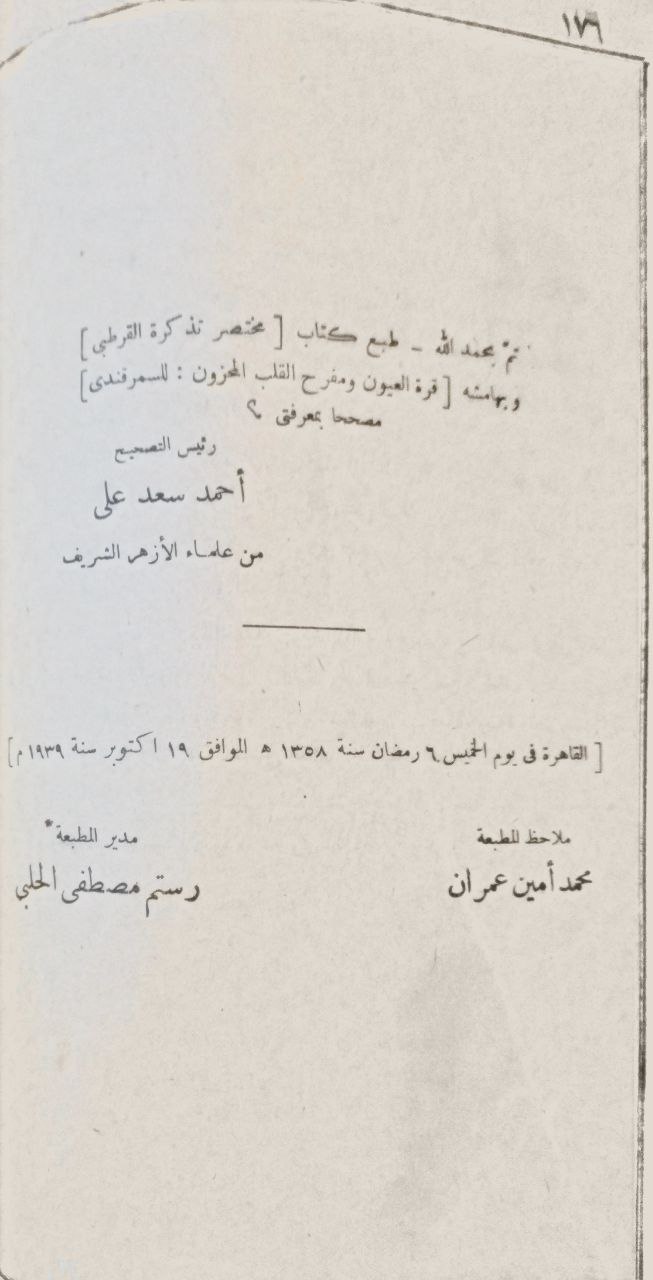 ١٧٦
تمّ بحمد الله - طبع كتاب [ مختصر تذكرة القرطبى ]
وبهامشه [ قرة العيون ومفرح القلب المحزون : للسمرقندى ]
مصححا بمعرفتى ؟
رئيس التصحيح
أحمد سعد على
من علماء الأزهر الشريف
[ القاهرة فى يوم الخميس ٦ رمضان سنة ١٣٥٨ ه الموافق ١٩ اكتوبر سنة ١٩٣٩ م ]
ملاحظ المطبعة مدير المطبعة
محمد أمين عمران رستم مصطفى الحلبى